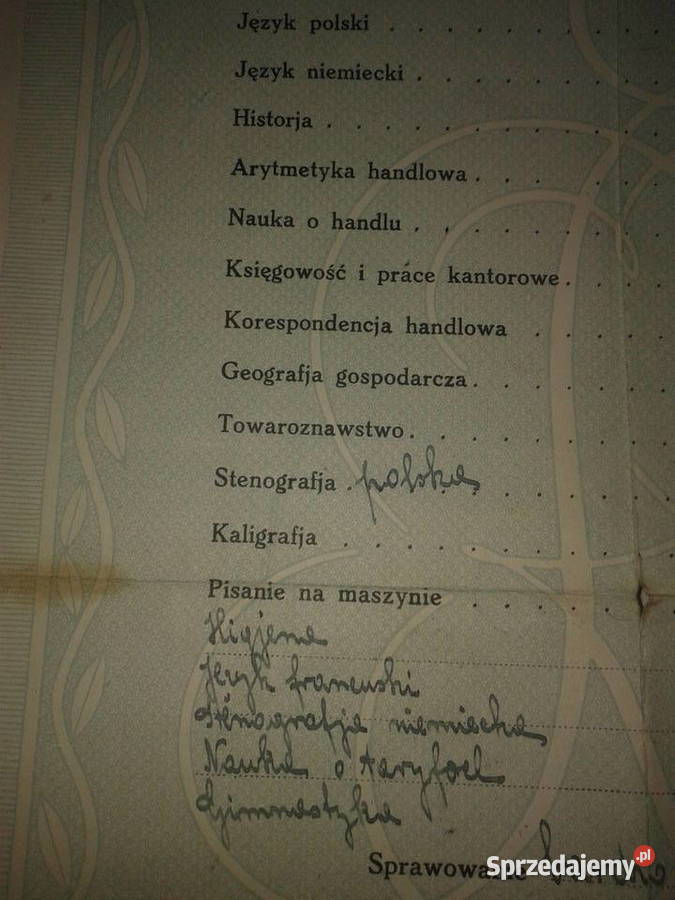 Język polski . . . . . . . . .
Język niemiecki . . . . . . . .
Historja . . . . . . . . . . .
Arytmetyka handlowa . . . . . .
Nauka o handlu . . . . . . . .
Księgowość i prace kantorowe . . . .
Korespondencja handlowa . . . . .
Geografja gospodarcza . . . . . .
Towaroznawstwo . . . . . . . .
Stenografja . polska . . . . . .
Kaligrafja . . . . . . . . . .
Pisanie na maszynie . . . . . .
Higjena
Język francuski
Stenografja niemiecka
Nauka o taryfach
Gimnastyka
Sprawowanie
Sprzedajemy.pl